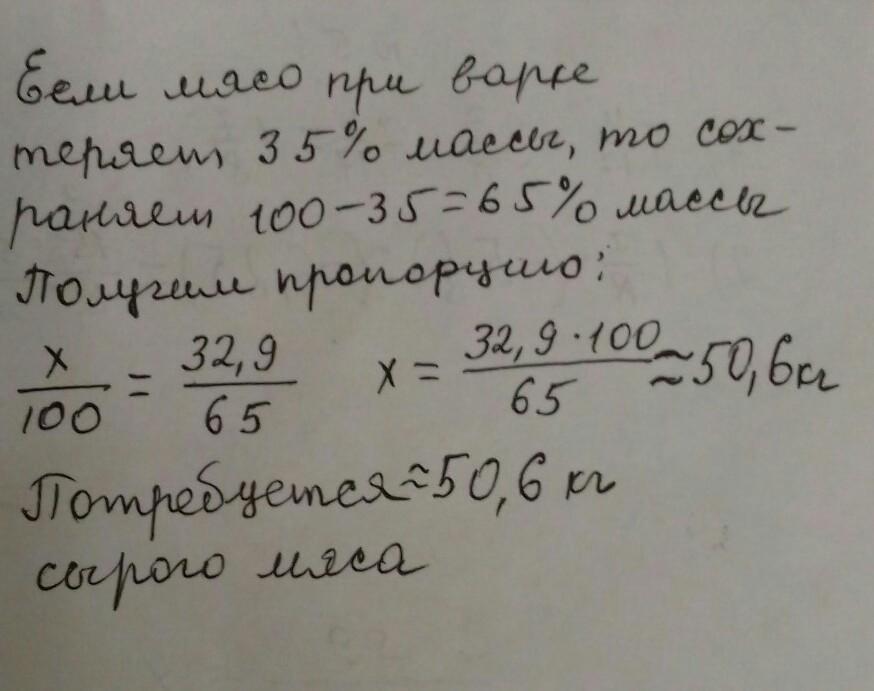 Если мясо при варке
теряет 35% массы, то сох-
раняет 100-35=65% массы
Получим пропорцию:
x/100 = 32,9/65 x = 32,9·100/65 ≈50,6кг
Потребуется≈50,6 кг
сырого мяса